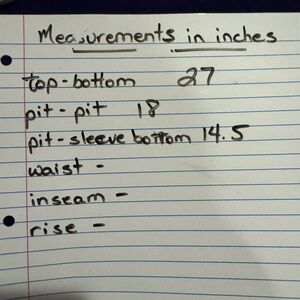 Measurements in inches
top-bottom 27
pit-pit 18
pit-sleeve bottom 14.5
waist -
inseam -
rise -